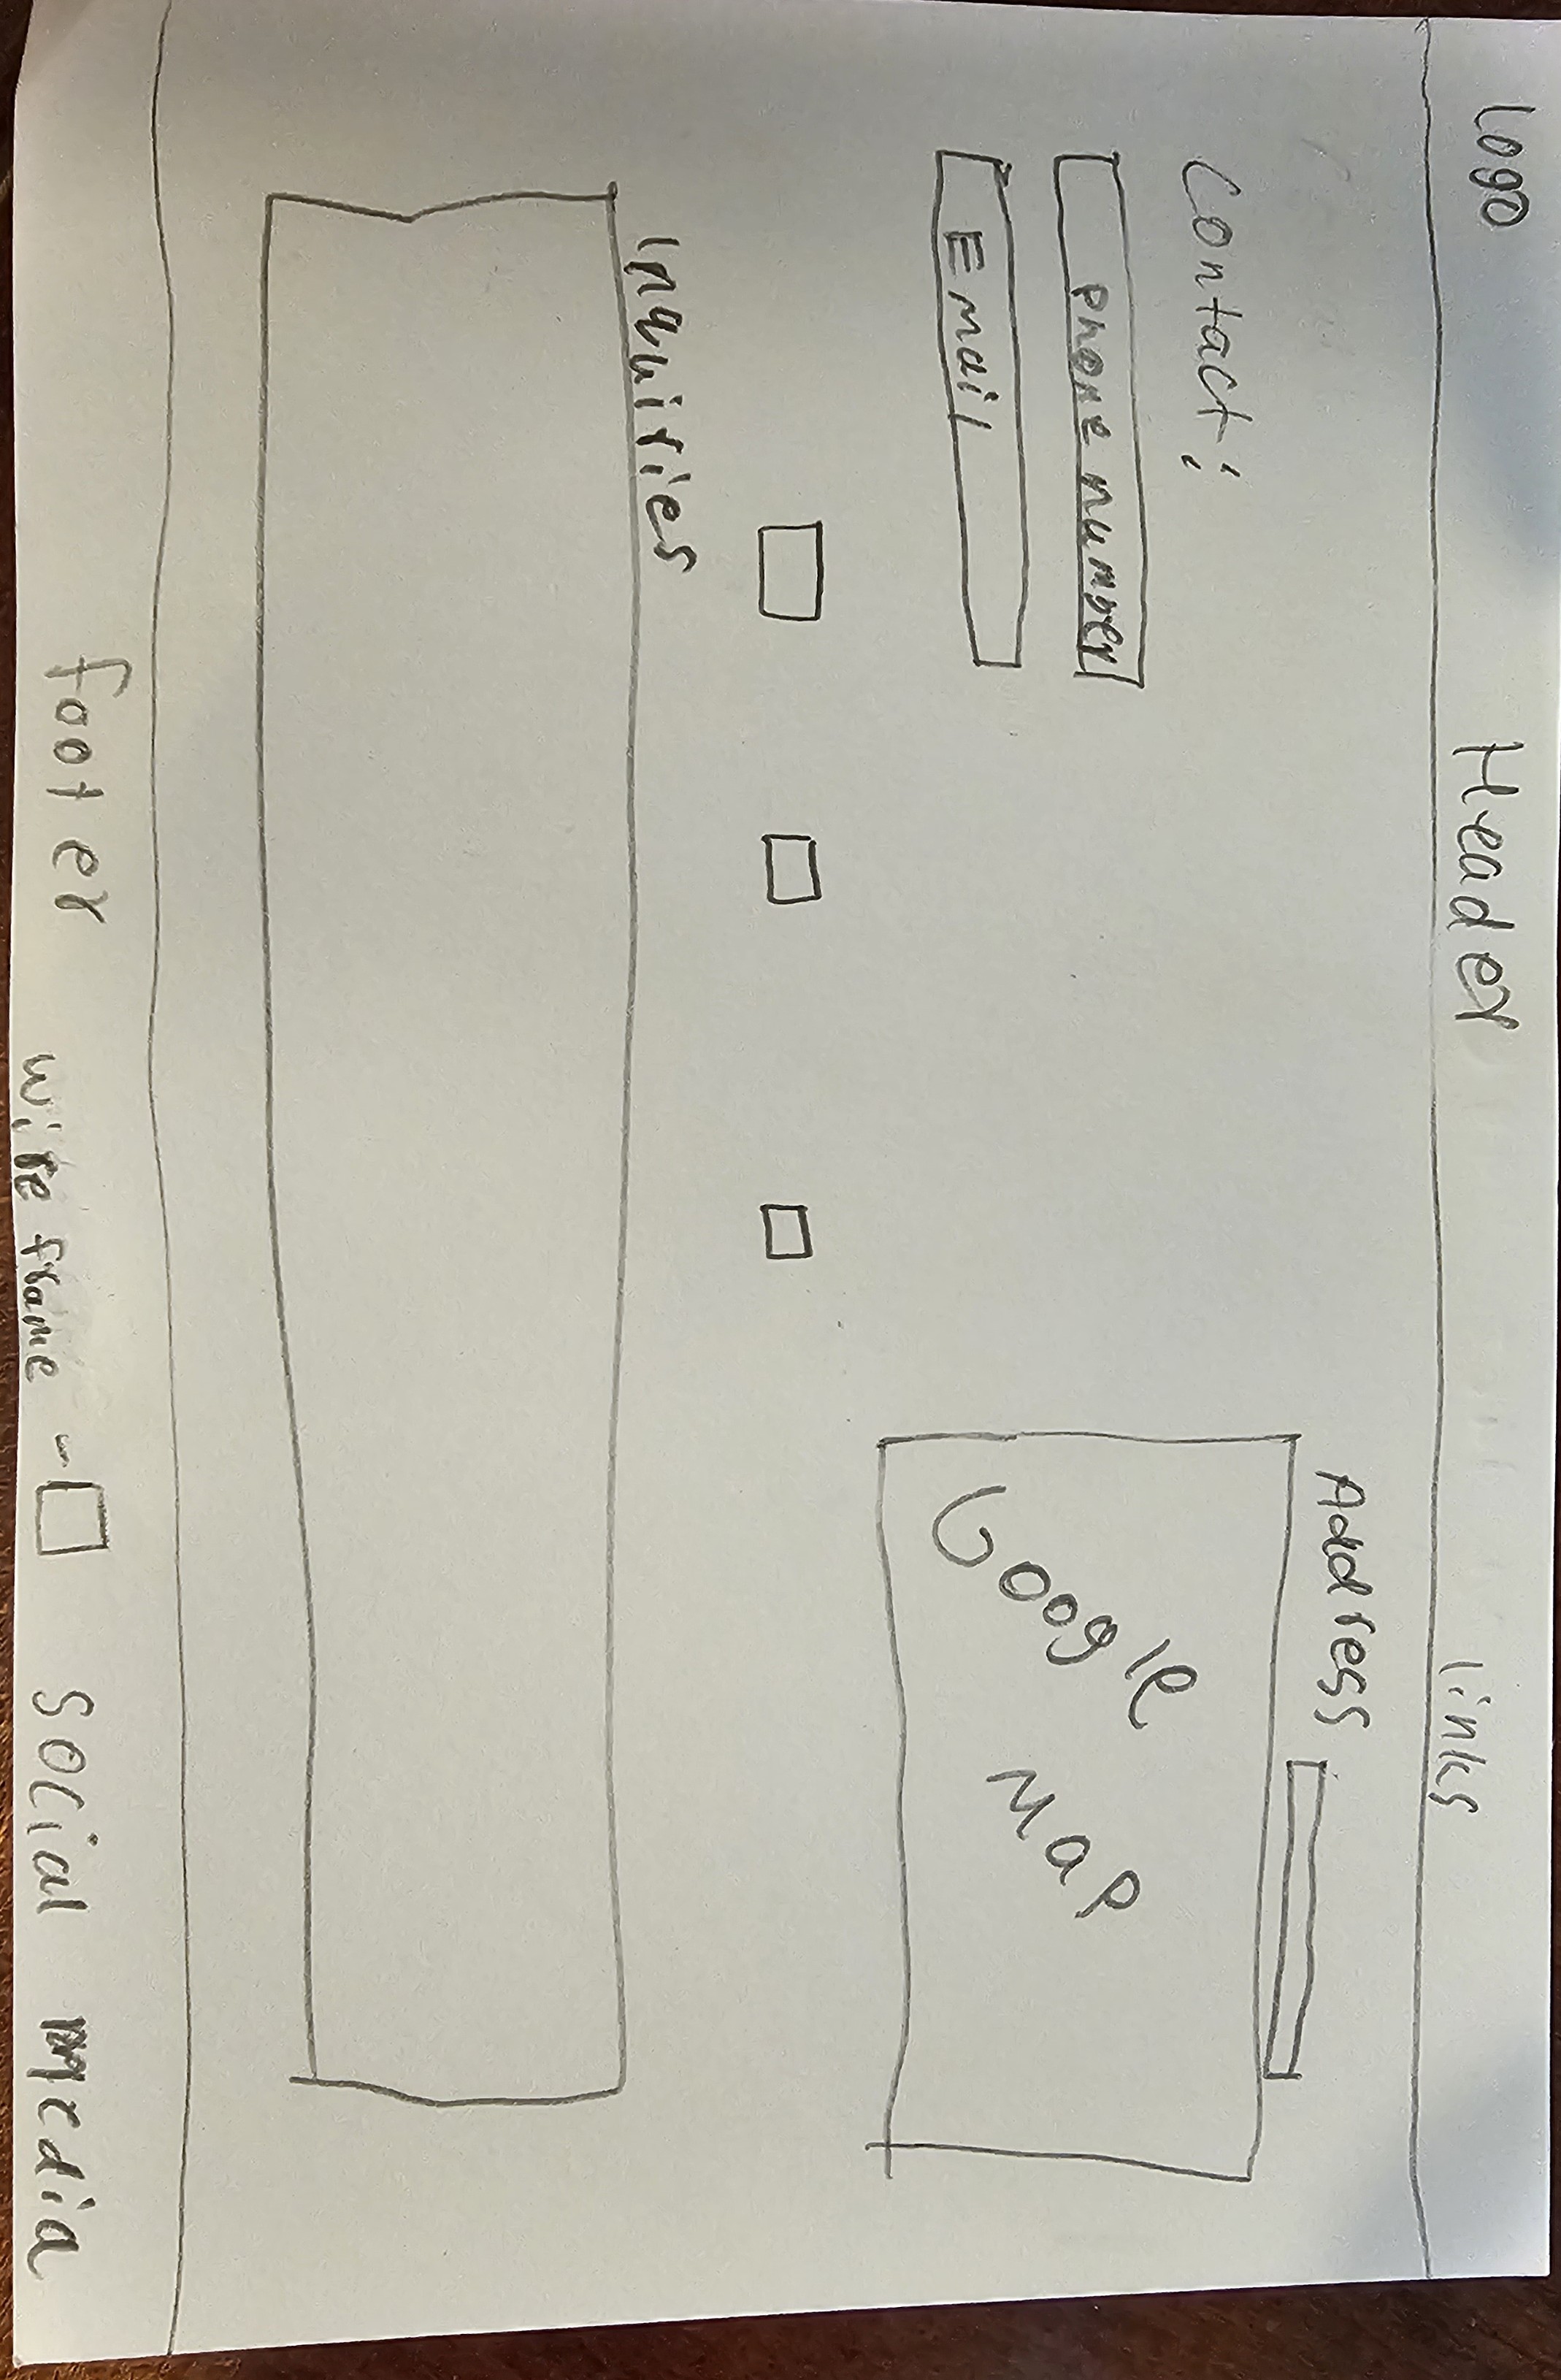 logo Header links
Contact:
Address
phone number
Email
Google
Map
Inquiries
footer wire frame - social media